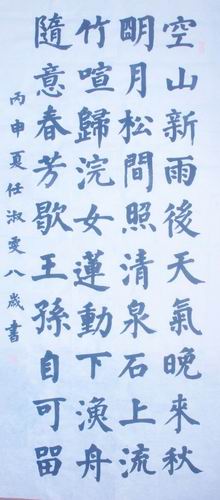 空山新雨後天氣晚來秋
明月松間照清泉石上流
竹喧歸浣女蓮動下漁舟
隨意春芳歇王孫自可留
丙申夏任淑雯八歲書